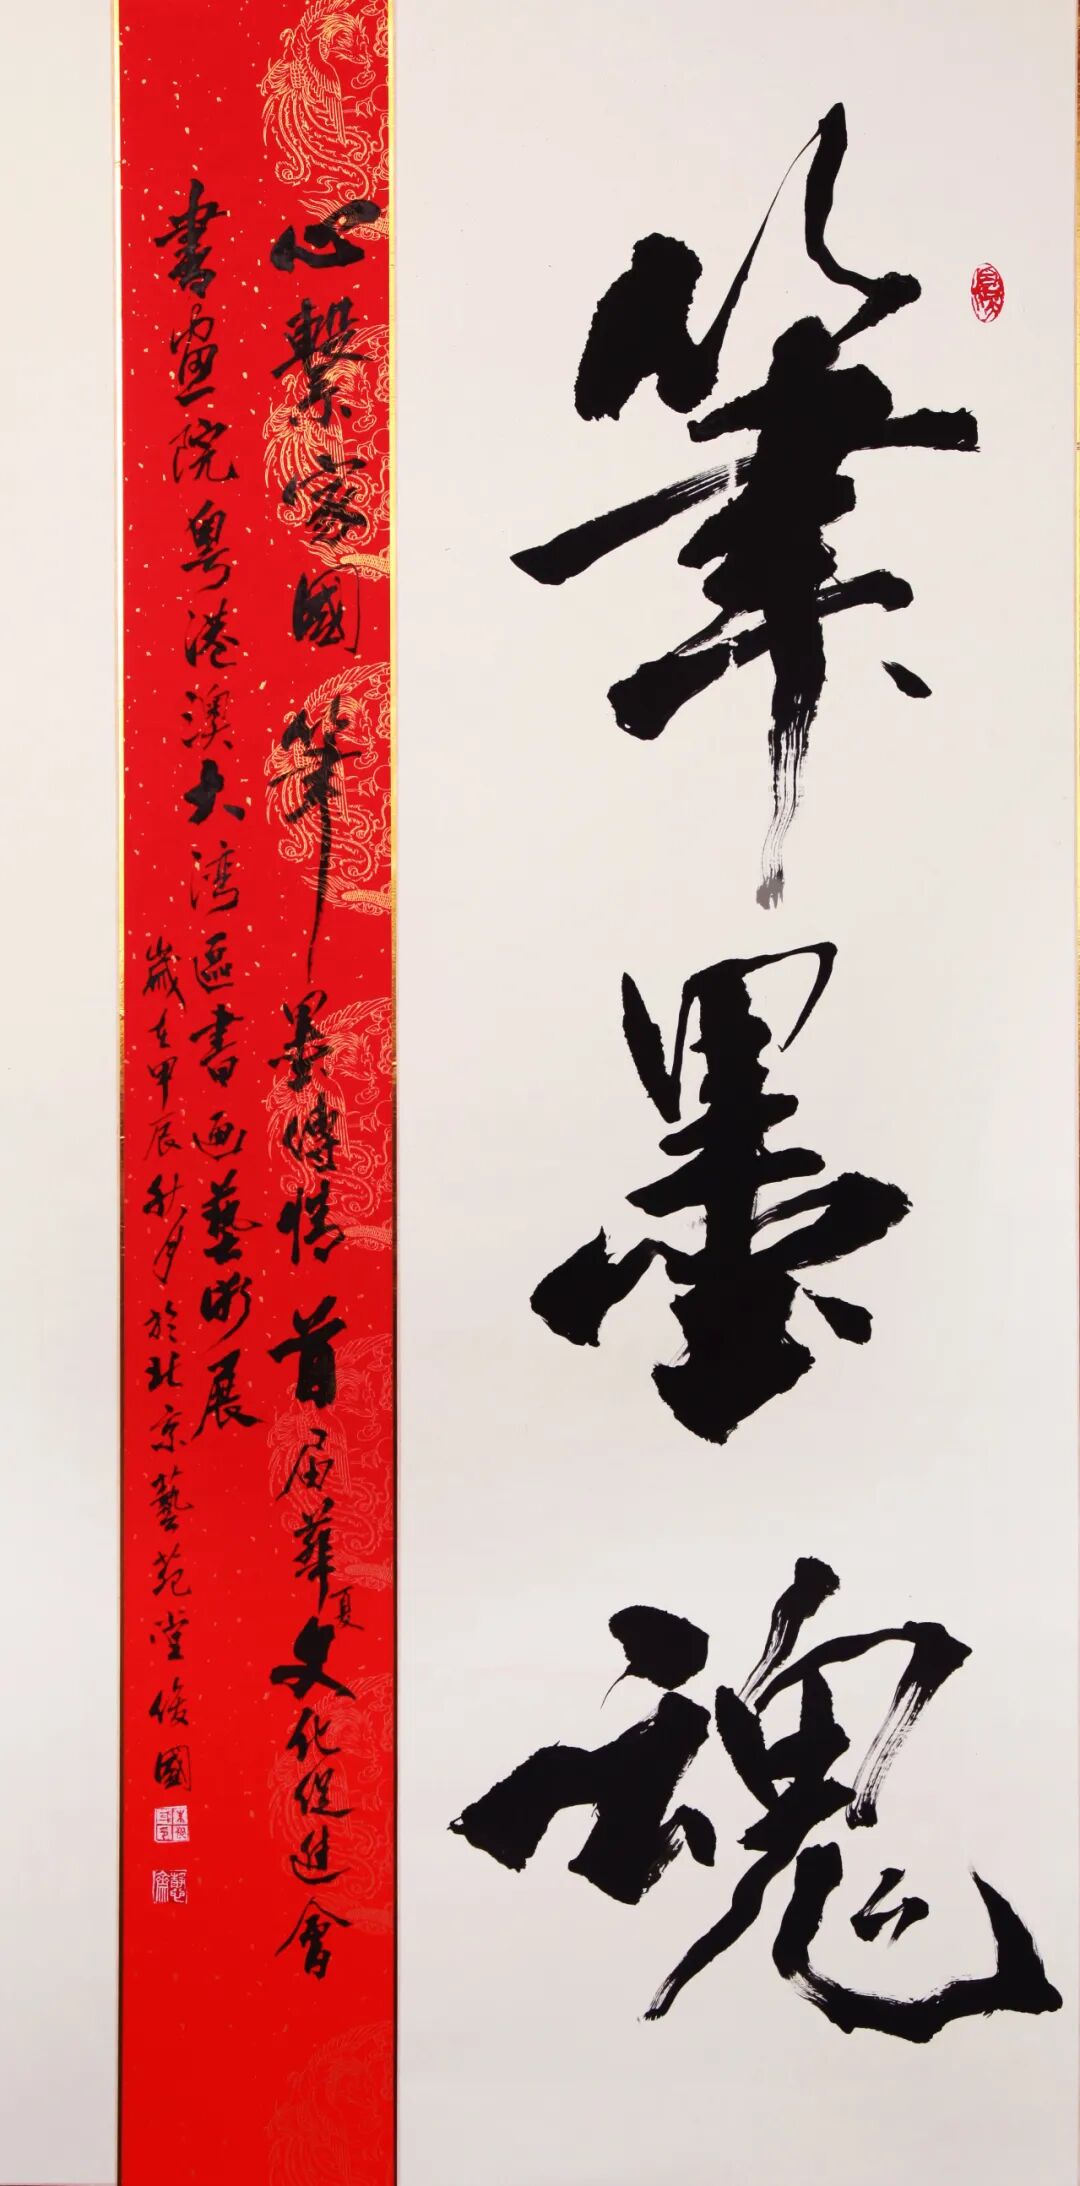 筆墨魂
心繫家國 筆墨傳情 首届華夏文化促進會
書畫院粤港澳大湾區書画藝術展
歲在甲辰秋月於北京藝苑堂俊國